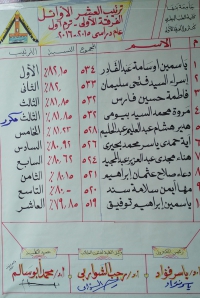 ترتيب العشر الأوائل
الفرقة الأولى - فرع أول
عام دراسى ٢٠١٥ - ٢٠١٦
م الاســـم المجموع النسبة الترتيب
١ ياسمين أسامة عبد القادر ٥٣٤ ٨٢,١٥٪ الأول
٢ إسراء السيد فتحى سليمان ٥٣٣ ٨٢,٠٠٪ الثانى
٣ فاطمة حسين فارس ٥٣٢ ٨١,٨٤٪ الثالث
٤ مروة محمد السيد بيومى ٥٣٢ ٨١,٨٤٪ الثالث مكرر
٥ هدير هشام عبد العليم عبد الحليم ٥٢٨ ٨١,٢٣٪ الخامس
٦ آية حمدى ياسر محمد بحيرى ٥٢٦ ٨٠,٩٢٪ السادس
٧ هناء مجدى عبد العزيز عبد المجيد ٥٢٤ ٨٠,٦٢٪ السابع
٨ دعاء صلاح عثمان إبراهيم ٥٢١ ٨٠,١٥٪ الثامن
٩ مها أيمن سلامة سند ٥٢٠ ٨٠,٠٠٪ التاسع
١٠ ياسمين إبراهيم توفيق ٥١٩ ٧٩,٨٥٪ العاشر
أ.د/ ياسر فؤاد
أ.د/ رجب الشوربى
أ.د/ محمد أبو سالم